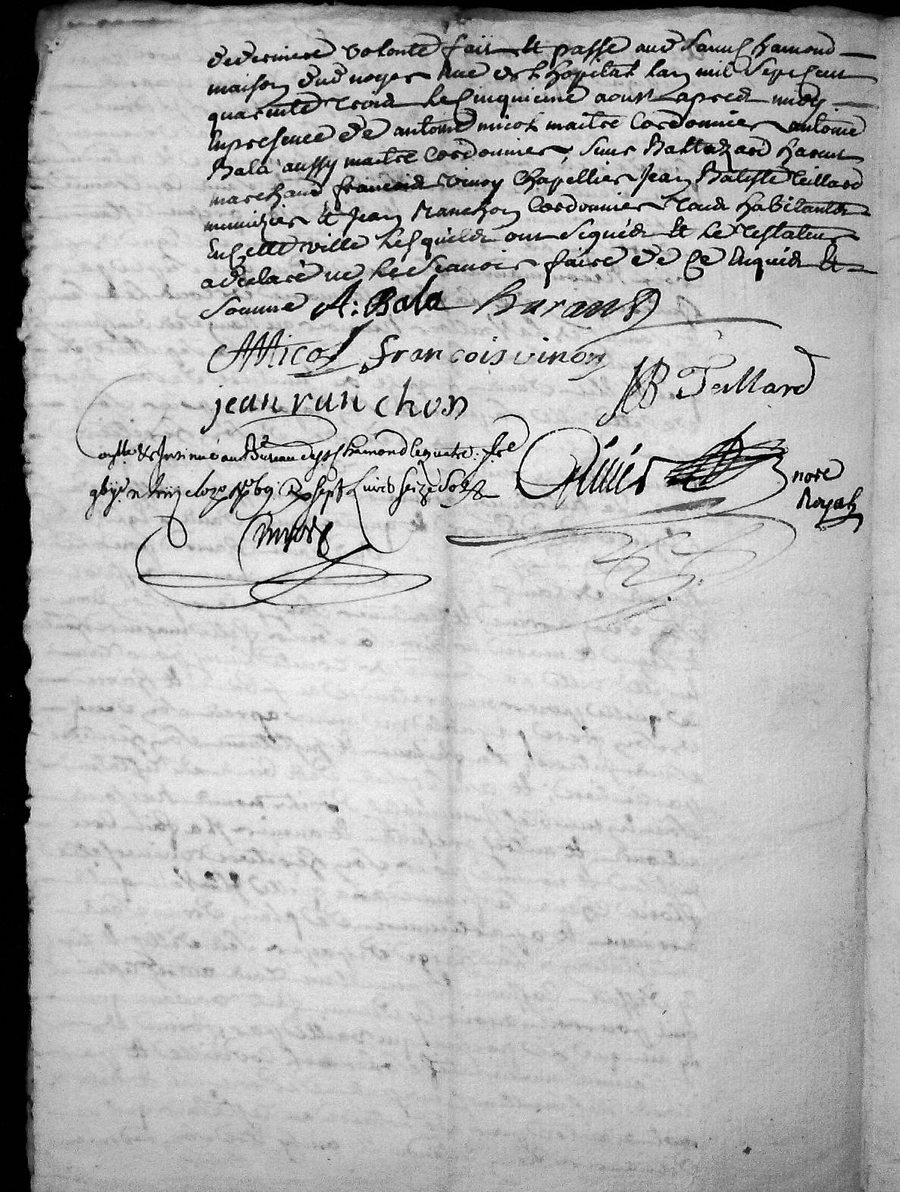 de derniere volonté fait et passé aud sainct chamond
maison dud noyer rue de l hopital lan mil sept cent
quarante trois le cinquieme aoust apres midy
en presence de antoine micol maitre cordonnier antoine
Bala aussy maitre cordonnier, sieur Baltazard haraut
marchand francois vinoy chapellier Jean Batiste teillard
menuizier et Jean Ranchon cordonnier tous habitants
en cette ville lesquels ont signés et le testateur
a declaré ne le scavoir faire de ce enquis et
sommé A: Bala haraud
AMicol francois vinoy
JB Teillard
jean ranchon
et insinué au Bureau de st chamond le quatre
sept livres seize sols
nore
Royal